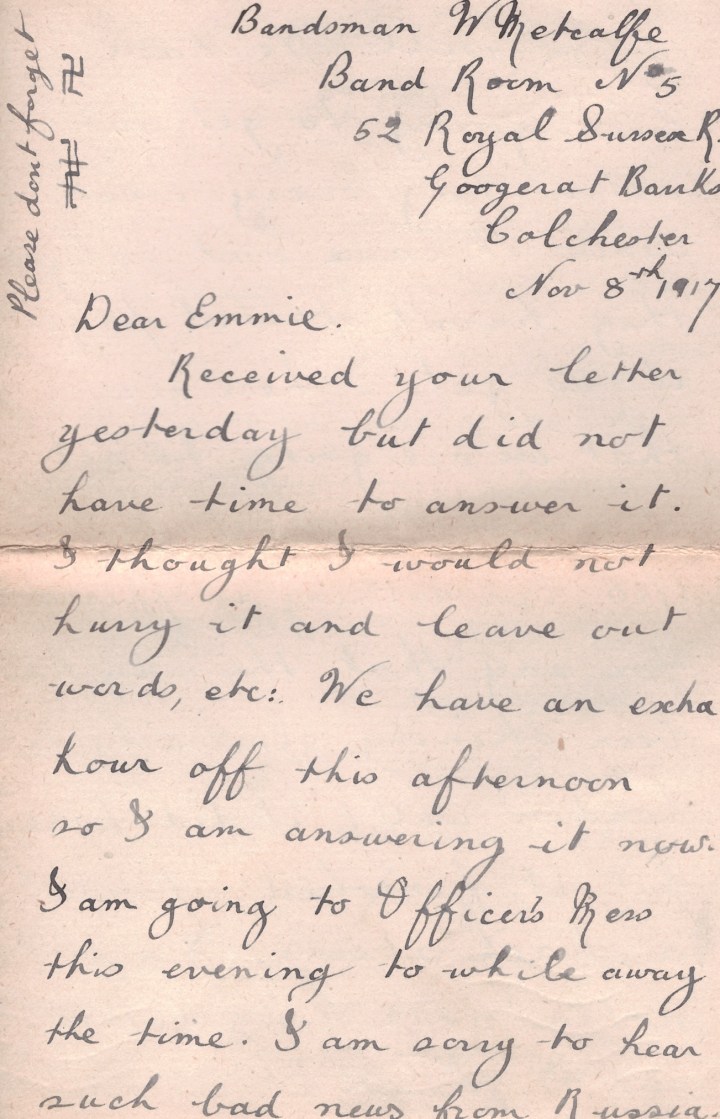 Please dont forget
Bandsman W Metcalfe
Band Room No 5
52 Royal Sussex R.
Googerat Barks
Colchester
Nov 8th 1917
Dear Emmie.
Received your letter
yesterday but did not
have time to answer it.
I thought I would not
hurry it and leave out
words, etc:. We have an exha
hour off this afternoon
so I am answering it now.
I am going to Officer's Mess
this evening to while away
the time. I am sorry to hear
such bad news from Russia.